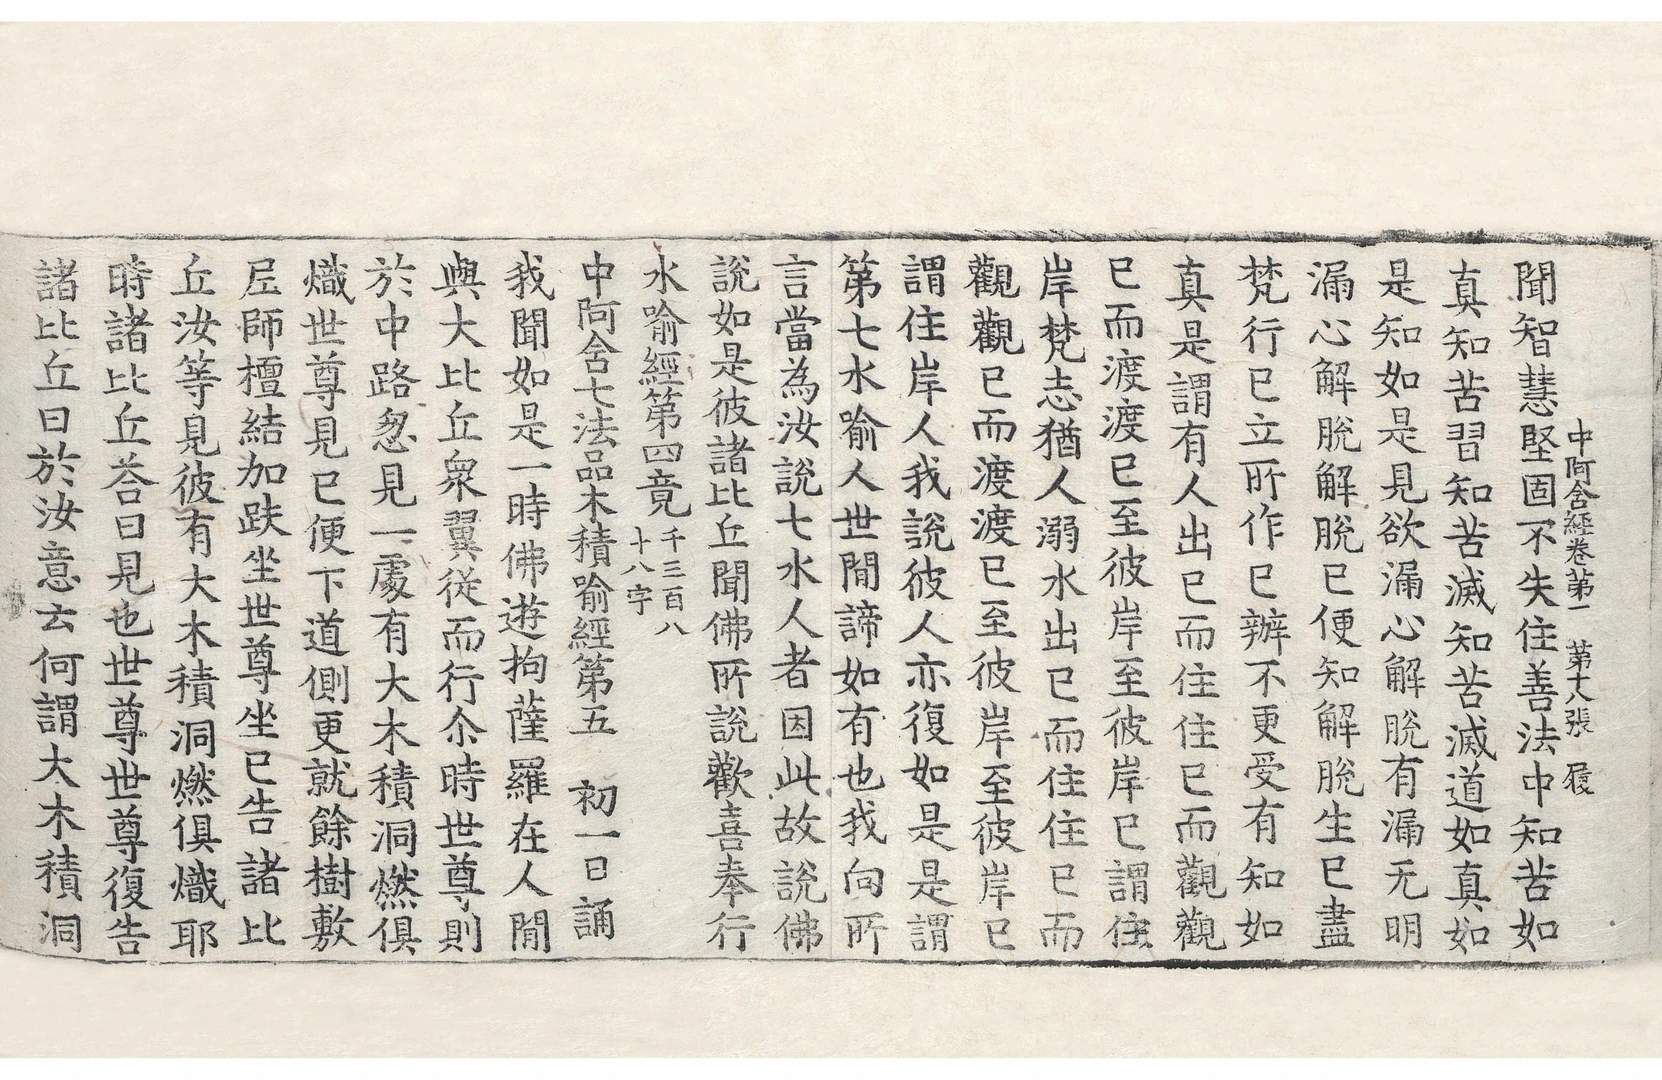 中阿含經卷第一　第十八張　履
聞智慧堅固不失住善法中知苦如
真知苦習知苦滅知苦滅道如真如
是知如是見欲漏心解脫有漏无明
漏心解脫解脫已便知解脫生已盡
梵行已立所作已辦不更受有知如
真是謂有人出已而住住已而觀觀
已而渡渡已至彼岸至彼岸已謂住
岸梵志猶人溺水出已而住住已而
觀觀已而渡渡已至彼岸至彼岸已
謂住岸人我說彼人亦復如是是謂
第七水喻人世閒諦如有也我向所
言當為汝說七水人者因此故說佛
說如是彼諸比丘聞佛所說歡喜奉行
水喻經第四竟 千三百八十八字
中阿含七法品木積喻經第五　初一日誦
我聞如是一時佛遊拘薩羅在人閒
與大比丘衆翼從而行尒時世尊則
於中路忽見一處有大木積洞燃俱
熾世尊見已便下道側更就餘樹敷
尼師檀結加趺坐世尊坐已告諸比
丘汝等見彼有大木積洞燃俱熾耶
時諸比丘荅曰見也世尊世尊復告
諸比丘曰於汝意云何謂大木積洞